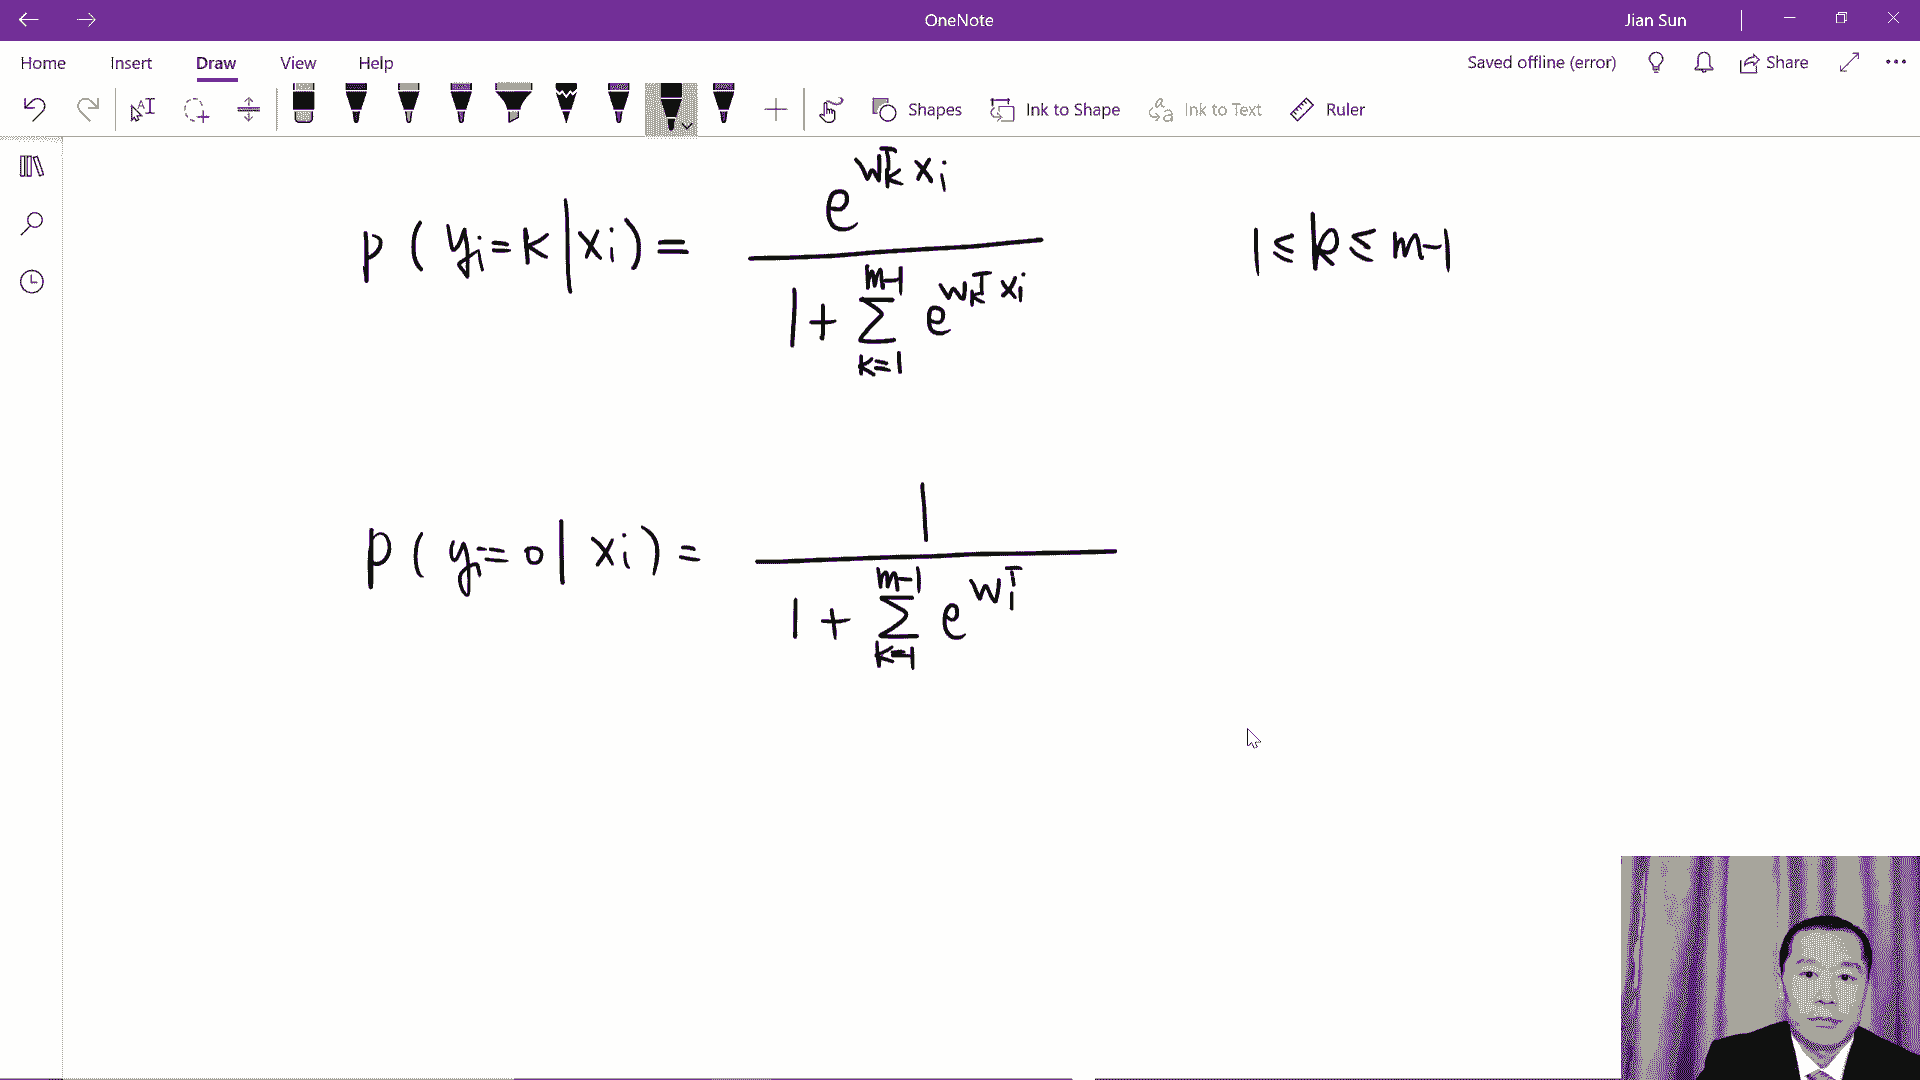 OneNote
Jian Sun
Home Insert Draw View Help
Saved offline (error)
Share
Shapes
Ink to Shape
Ink to Text
Ruler
p(y_i=k|x_i) = \frac{e^{w_k^T x_i}}{1+\sum_{k=1}^{m-1} e^{w_k^T x_i}} 1≤k≤m-1
p(y_i=0|x_i) = \frac{1}{1+\sum_{k=1}^{m-1} e^{w_i^T}}